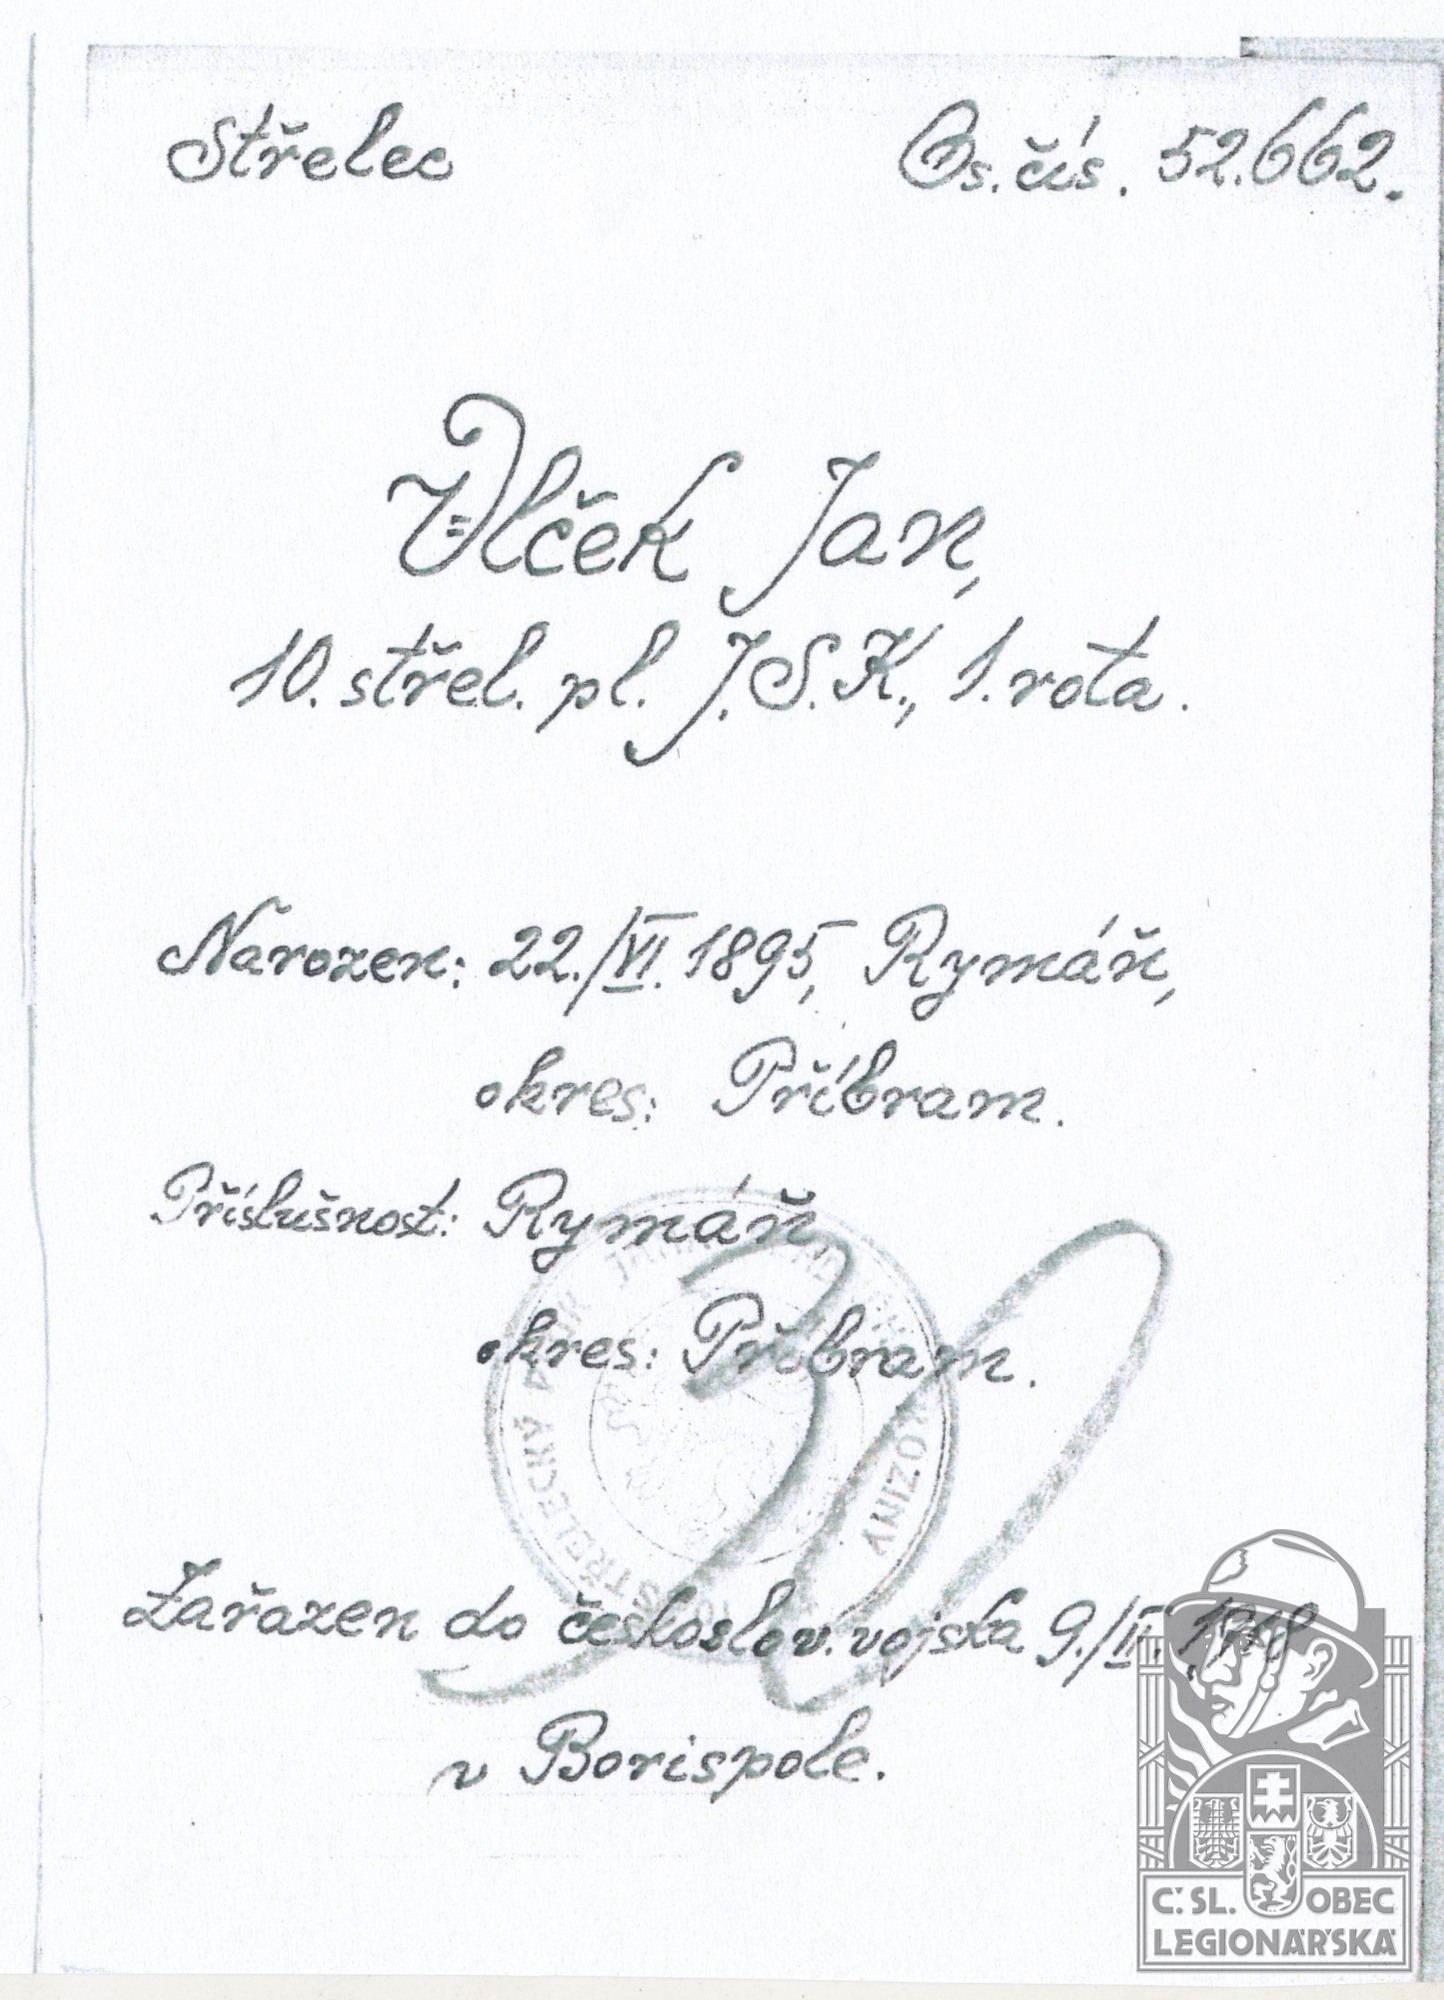 Střelec Os. čís. 52.662.
Vlček Jan,
10. střel. pl. J.S.K., 1. rota.
Narozen: 22./VI. 1895, Rymáň,
okres: Příbram.
Příslušnost: Rymáň
okres: Příbram.
STŘELECKÝ KOZINY
Zařazen do českoslov. vojska 9./II. 1918
v Borispole.
Č.SL. OBEC
LEGIONÁŘSKÁ